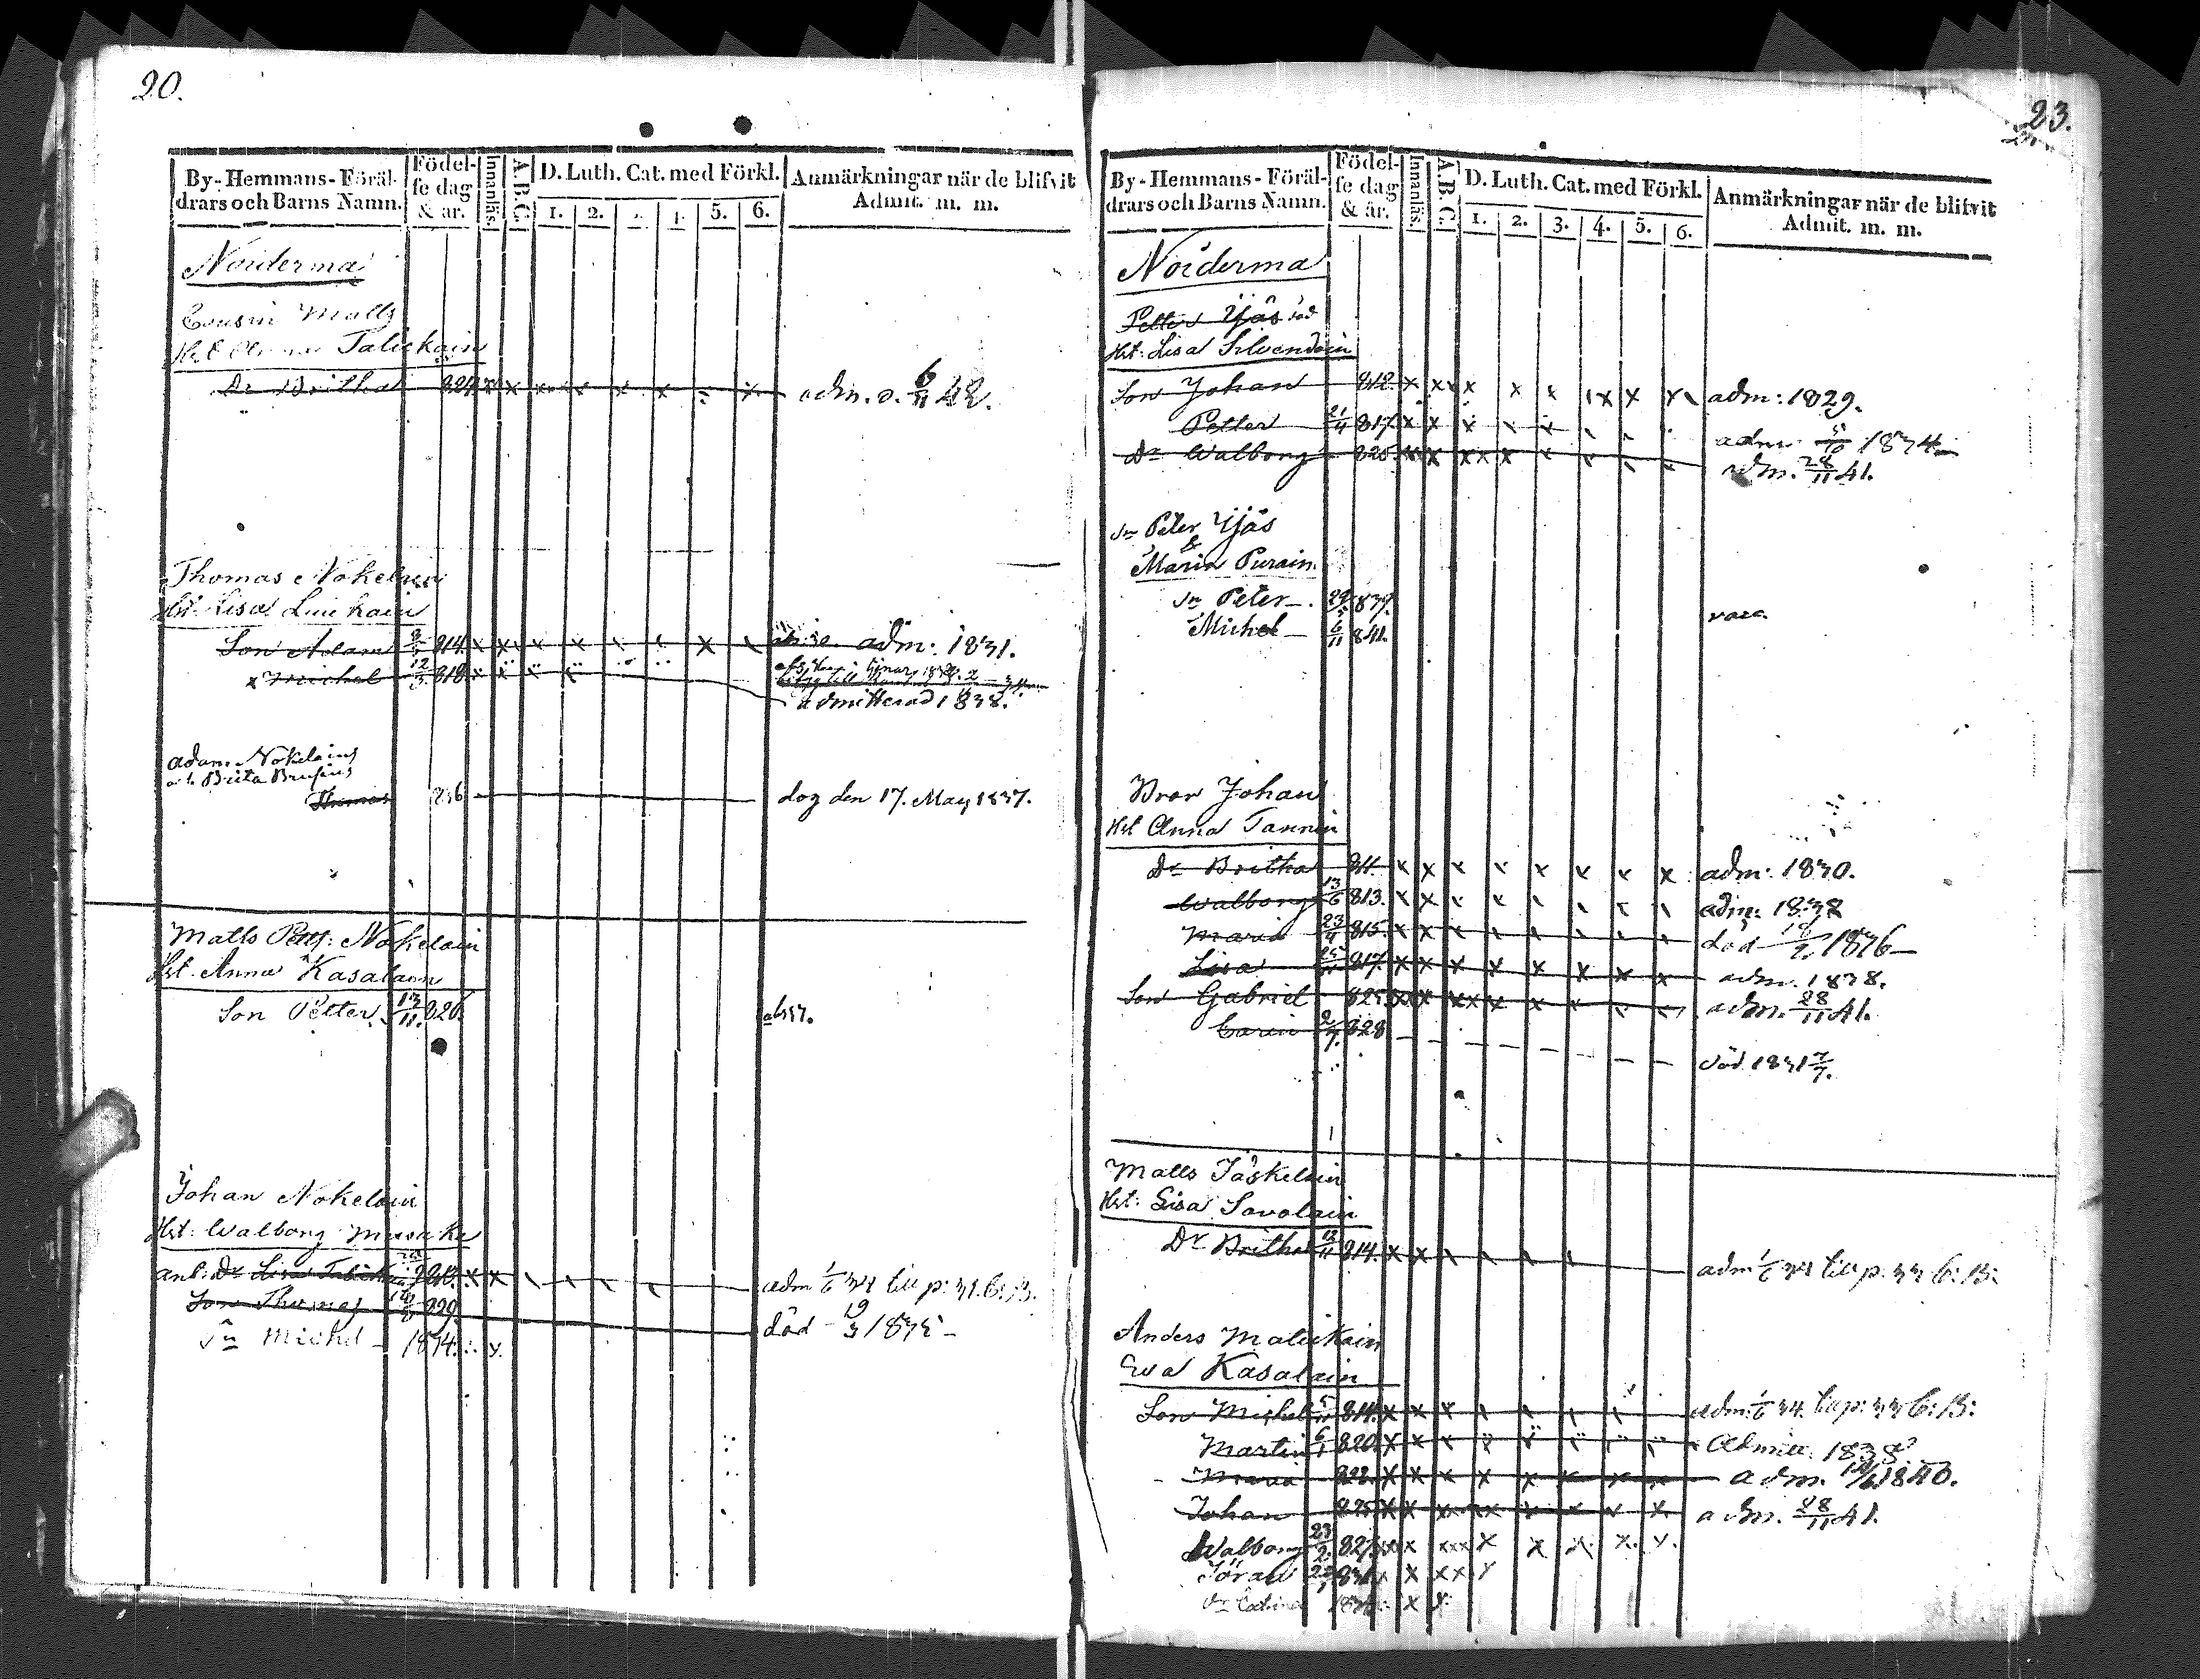 20.
By-Hemmans-Föräl-
drars och Barns Namn.
Födel-
se dag
& år.
Innanläs.
A.B.C.
D. Luth. Cat. med Förkl.
1. 2. 5. 6.
Anmärkningar när de blifvit
Admit. m. m.
Noiderma
Cousin Matts
Hst Talickain
Dr Britha 824 x x x x x x adm. d. 6/11 42.
Thomas Nokelain
Hst: Lisa Luickain
Son Adam 814 x x x x x x adm: 1831.
x Michel 12/3 818 x
admitterad 1838.
Adam Nokelains
Brita Brusins
Thomas 836 dog den 17. May 1837.
Matts Petts: Nokelain
Hst. Anna Kasalain
Son Petter 13/11. 826.
Johan Nokelain
Hst: Walborg
Dr Lisa x x adm 1/6 34 till p: 31. b: B.
Son Thomas 829. död 19/3 1835
Sn Michel 1834. x.
23.
By-Hemmans-Föräl-
drars och Barns Namn.
Födel-
se dag
& år.
Innanläs.
A.B.C.
D. Luth. Cat. med Förkl.
1. 2. 3. 4. 5. 6.
Anmärkningar när de blifvit
Admit. m. m.
Noiderma
Petter Yjäs död
Hst: Lisa Silvendoin
Son Johan 812. x x x x x x x x x adm: 1829.
Petter 21/4 817 x x x x adm 1834
Dr Walborg 825 x x x x x adm. 28/11 41.
Sn Peter Yjäs
&
Maria Purain
Sn Peter 29 839.
Michel 6/11 841.
vacc.
Bror Johan
Hst Anna Tannin
Dr Britha 811 x x x x x x x x adm: 1830.
Walborg 13/6 813. x x adm: 1838
Maria 23/4 815. x x död 1836
Lisa 25 817. x x x x x x x x adm. 1838.
Son Gabriel 825 x x x x x x adm. 28/11 41.
Carin 2/7. 828
död 1831 7/7.
Matts Jäskelain
Hst: Lisa Savolain
Dr Britha 814. x x adm 1/6 34 till p: 33 b: B:
Anders Malickain
Eva Kasalain
Son Michel 814. x x x adm: 1/6 34. till p: 33 b: B:
Martin 6/1 820. x x Admitt: 1838
Maria 822. x x x x x x x x adm. 1840.
Johan 825 x x x x x x x x adm. 28/11 41.
Walborg 23/2 827 x x x x x x x x x x
Jöran 831 x x x x x